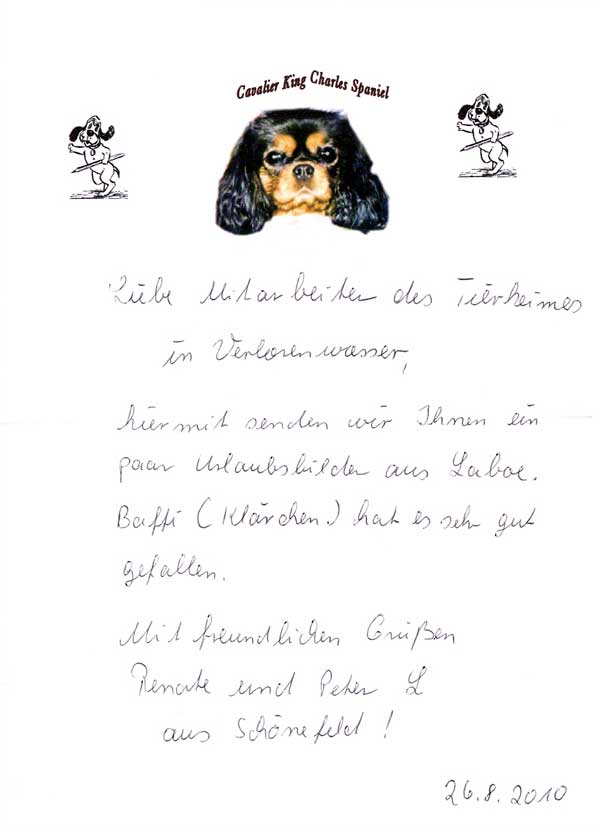 Cavalier King Charles Spaniel
Liebe Mitarbeiter des Tierheimes
in Verlorenwasser,
hiermit senden wir Ihnen ein
paar Urlaubsbilder aus Laboe.
Baffi (Klärchen) hat es sehr gut
gefallen.
Mit freundlichen Grüßen
Renate und Peter L
aus Schönefeld!
26.8.2010